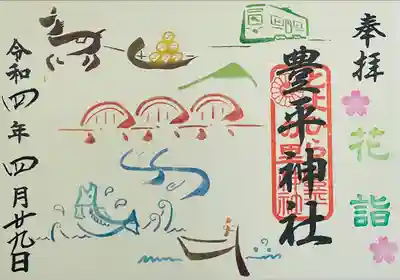 奉拝
花詣
豊平神社
令和四年四月廿九日